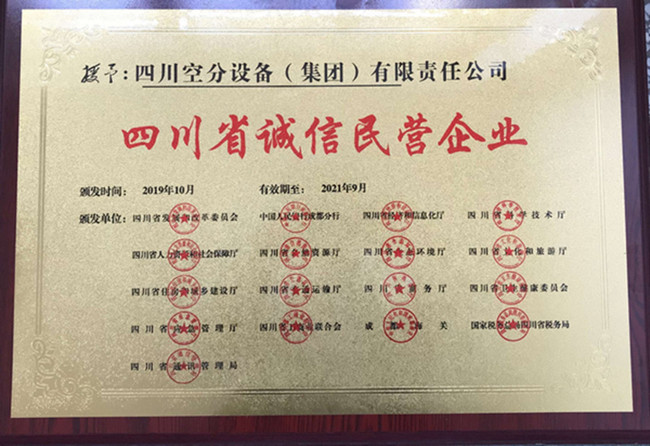 授予：四川空分设备（集团）有限责任公司
四川省诚信民营企业
颁发时间： 2019年10月 有效期至： 2021年9月
颁发单位： 四川省发展和改革委员会 中国人民银行成都分行 四川省经济和信息化厅 四川省科学技术厅
四川省人力资源和社会保障厅 四川省自然资源厅 四川省生态环境厅 四川省文化和旅游厅
四川省住房和城乡建设厅 四川省交通运输厅 四川省商务厅 四川省卫生健康委员会
四川省应急管理厅 四川省工商业联合会 成都海关 国家税务总局四川省税务局
四川省通信管理局